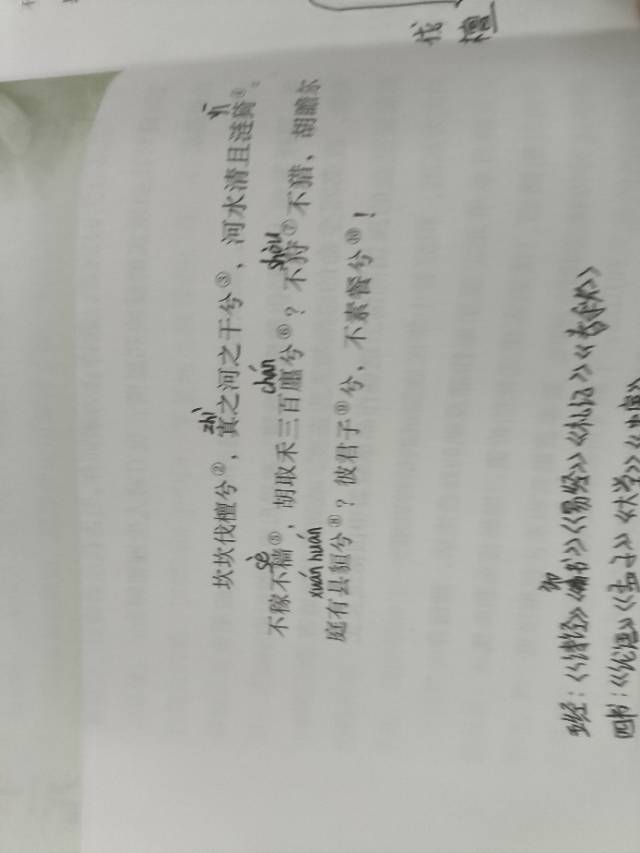 伐
檀
yī
坎坎伐檀兮②，寘之河之干兮③，河水清且涟猗④。
zhì
不稼不穑⑤，胡取禾三百廛兮⑥？不狩⑦不猎，胡瞻尔
sè chán shòu
庭有县貆兮⑧？彼君子⑨兮，不素餐兮⑩！
xuán huán
五经：《诗经》《尚书》《易经》《礼记》《春秋》
四书：《论语》《孟子》《大学》《中庸》